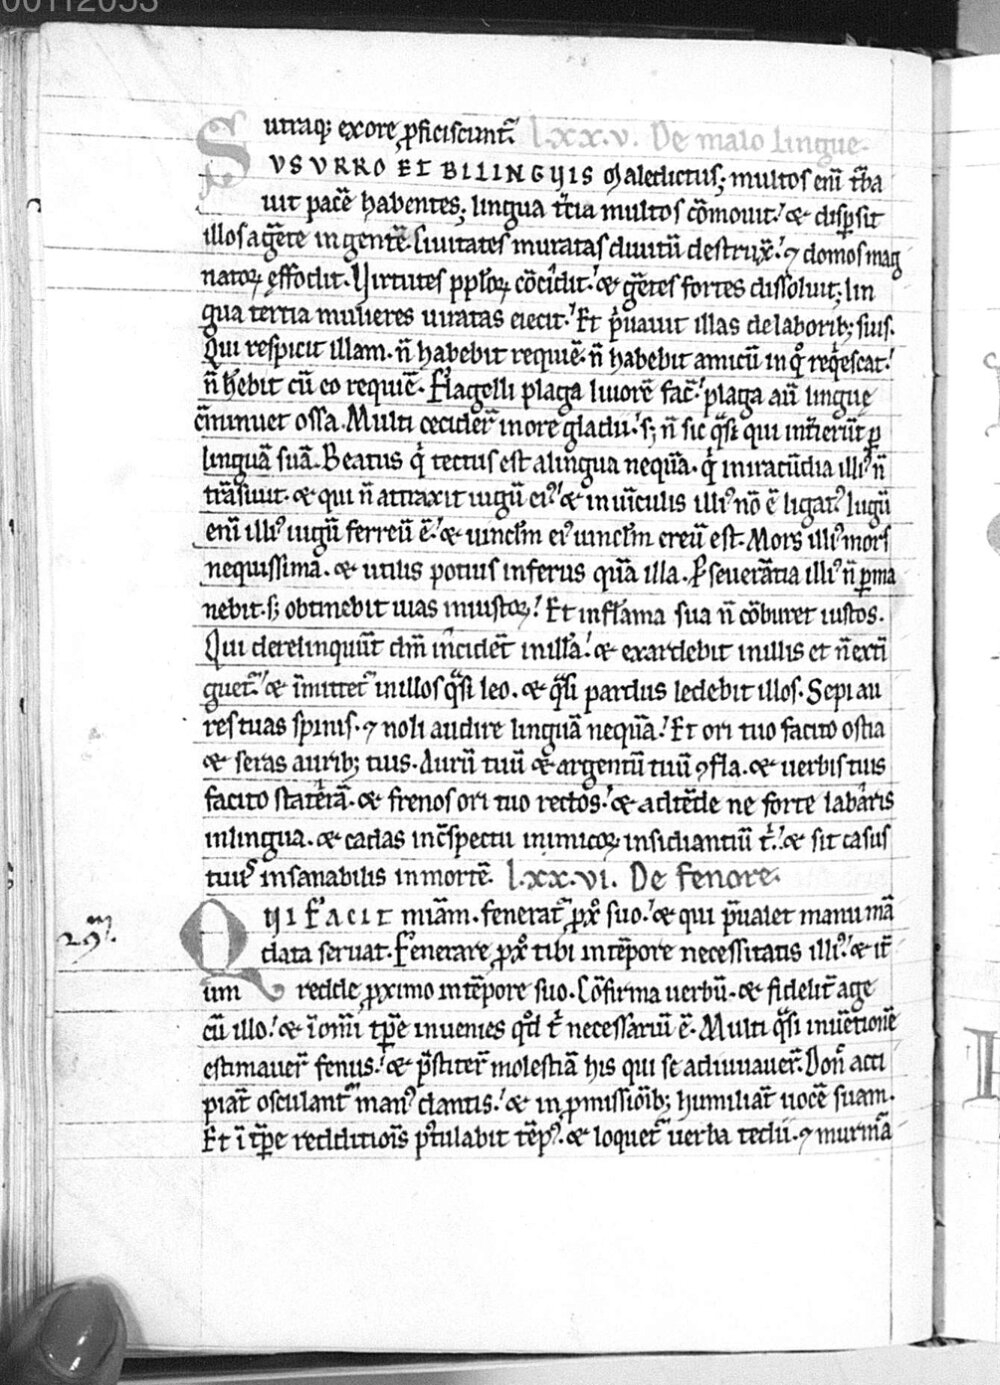 00112053
utraq; ex ore ꝓficiscunt᷑ l.xx.v. De malo lingue.
SVSVRRO ET BILINGVIS Maledictus; multos eni̅ t̅ba
uit pace̅ habentes; lingua t̅cia multos co̅mouit. & disꝑsit
illos a ge̅te in gente̅. Ciuitates muratas diuitu̅ destrux̅. ⁊ domos mag
natoꝝ effodit. Virtutes pploꝝ co̅cidit. & ge̅tes fortes dissoluit; lin
gua tertia mulieres uiratas eiecit. Et p̅uauit illas de laborib; suis.
Qui respicit illam. n̅ habebit requie̅. n̅ habebit amicu̅ in qͦ req̇escat.
n̅ hebit cu̅ eo requie̅. Flagelli plaga liuore̅ fac̅. plaga au̅ lingue
c̅minuet ossa. Multi cecider̅ in ore gladii. s; n̅ sic q̅si qui int̅ieru̅t ꝑ
lingua̅ sua̅. Beatus q̇ tectus est a lingua nequa̅. q̇ in iracu̅dia illiꝰ n̅
tra̅siuit. & qui n̅ attraxit iugu̅ eiꝰ. & in ui̅culis illiꝰ no̅ e̅ ligatꝰ. Iugu̅
eni̅ illiꝰ iugu̅ ferreu̅ e̅. & uincl̅m eiꝰ uincl̅m ereu̅ est. Mors illiꝰ mors
nequissima̅. & utilis potius inferus qua̅ illa. ꝑseuera̅tia illiꝰ n̅ ꝑma
nebit. s; obtinebit uias iniustoꝝ. Et in flama sua n̅ co̅buret iustos.
Qui derelinquu̅t dm̅ incide̅t in illa̅. & exardebit in illis et n̅ exti
guet᷑. & i̅mittet᷑ in illos q̅si leo. & q̅si pardus ledebit illos. Sepi au
res tuas spinis. ⁊ noli audire lingua̅ nequa̅. Et ori tuo facito ostia
& seras aurib; tuis. Auru̅ tuu̅ & argentu̅ tuu̅ ꝯfla. & uerbis tuis
facito statera̅. & frenos ori tuo rectos. & adte̅de ne forte labaris
in lingua. & cadas in c̅spectu inimicoꝝ insidiantiu̅ ṫ. & sit casus
tuus insanabilis in morte̅. l.xx.vi. De fenore.
QVI FACIT mia̅m. fenerat᷑ ꝓxͦ suo. & qui p̅ualet manu ma̅
data seruat. Fenerare ꝓxͦ tibi in te̅pore necessitatis illiꝰ. & it̅
29.
um redde ꝓximo in te̅pore suo. Co̅firma uerbu̅. & fidelit̅ age
cu̅ illo. & i̅ om̅i tp̅e inuenies qd̅ ṫ necessariu̅ e̅. Multi q̅si inue̅tione̅
estimauer̅ fenus. & p̅stiter̅ molestia̅ his qui se adiuuauer̅. Don̅ acci
piat̅ osculant᷑ manꝰ dantis. & in ꝓmissio̅ib; humiliat̅ uoce̅ suam.
Et i̅ tp̅e redditio̅is pꝰtulabit te̅pꝰ. & loquet᷑ uerba tedii. ⁊ murm̅a